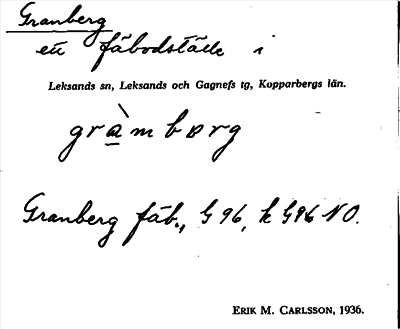 Granberg
ett fäbodställe i
Leksands sn, Leksands och Gagnefs tg, Kopparbergs län.
grа̀mbɒrg
Granberg fäb., G 96, k G96 NO.
ERIK M. CARLSSON, 1936.